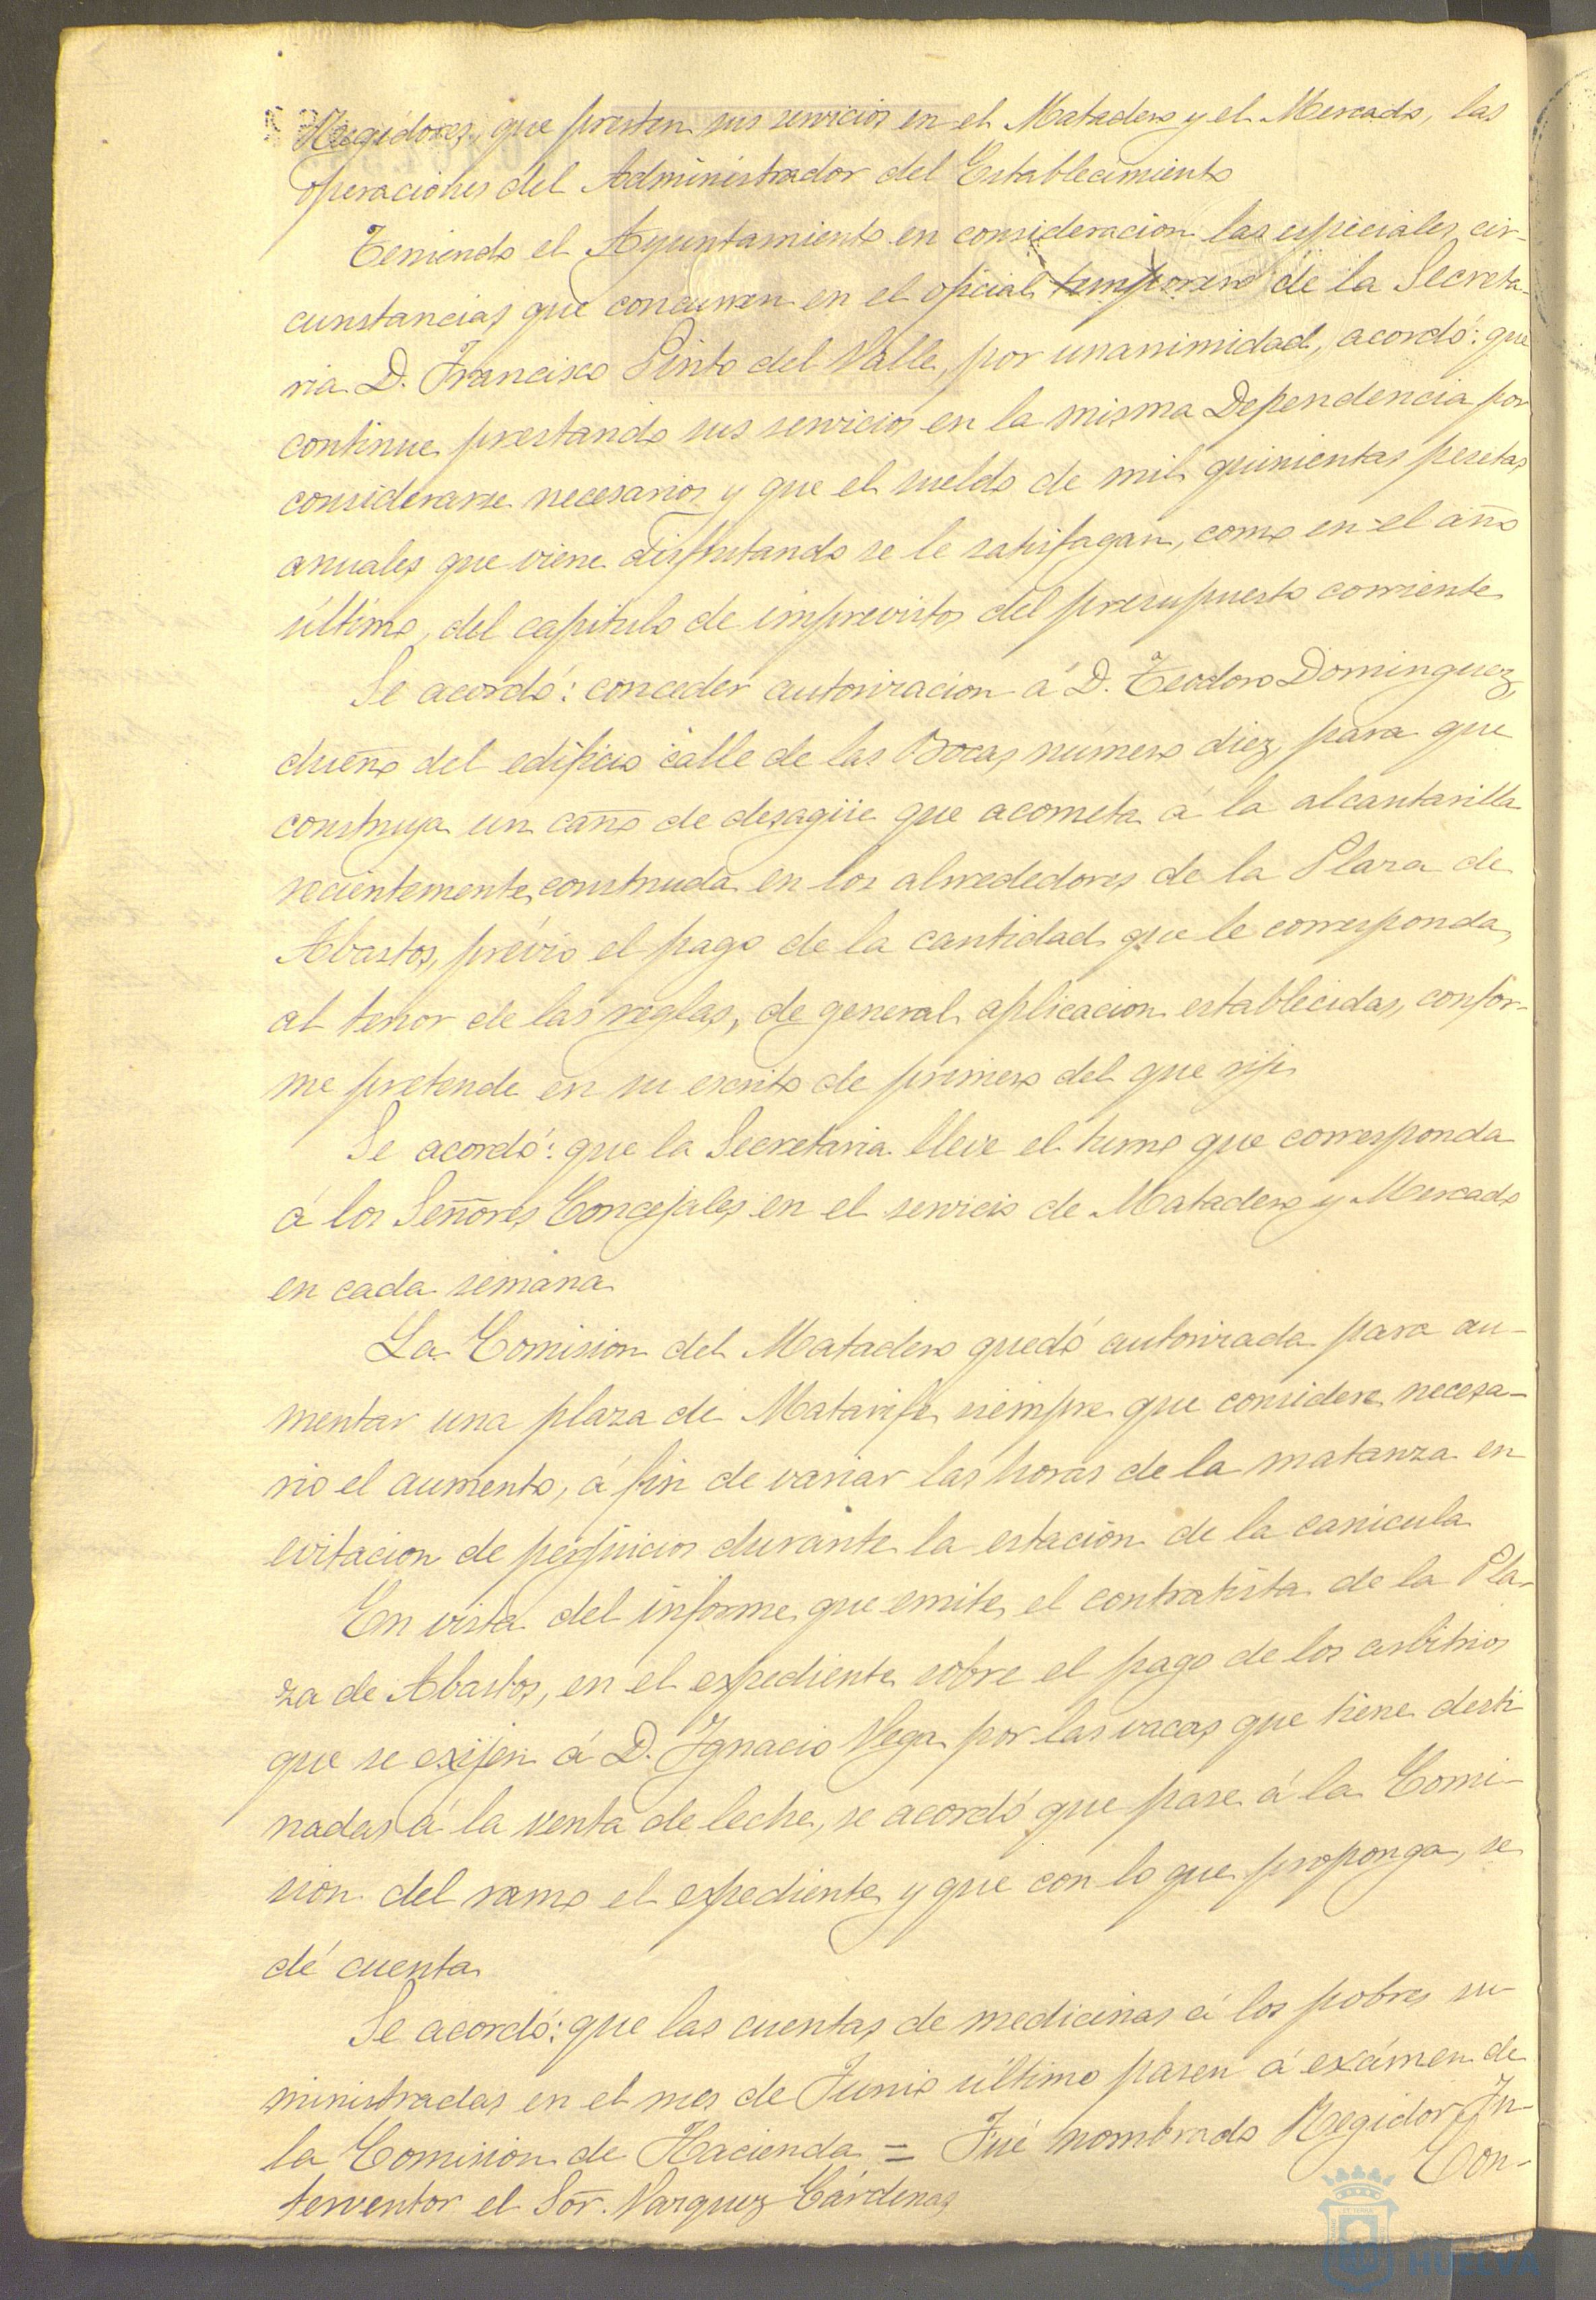 Regidores, que presten sus servicios en el Matadero y el Mercado, las
operaciones del Administrador del Establecimiento
Teniendo el Ayuntamiento en consideracion las especiales cir-
cunstancias que concurren en el oficial temporero de la Secreta-
ria D. Francisco Pinto del Valle, por unanimidad, acordó: que
continue prestando sus servicios en la misma Dependencia por
considerarse necesarios y que el sueldo de mil quinientas pesetas
anuales que viene disfrutando se le satisfagan, como en el año
último, del capitulo de imprevistos del presupuesto corriente
Se acordó: conceder autorizacion á D. Teodoro Dominguez,
dueño del edificio calle de las Bocas numero diez, para que
construya un caño de desagüe que acometa á la alcantarilla
recientemente construida en los alrededores de la Plaza de
Abastos, prévio el pago de la cantidad que le corresponda,
al tenor de las reglas, de general aplicacion establecidas, confor-
me pretende en su escrito de primero del que rije
Se acordó: que la Secretaria lleve el turno que corresponda
á los Señores Concejales en el servicio de Matadero y Mercado
en cada semana
La Comision del Matadero quedó autorizada para au-
mentar una plaza de Matarife, siempre que considere necesa-
rio el aumento, á fin de variar las horas de la matanza en
evitacion de perjuicios durante la estación de la canicula
En vista del informe que emite el contratista de la Pla-
za de Abastos, en el expediente sobre el pago de los arbitrios
que se exijen á D. Ignacio Vega por las vacas que tiene desti
nadas á la venta de leche, se acordó que pase á la Comi-
sion del ramo el expediente y que con lo que proponga, se
dé cuenta
Se acordó: que las cuentas de medicinas á los pobres su-
ministradas en el mes de Junio último pasen á exámen de
la Comision de Hacienda = Fué nombrado Regidor In-
terventor el Sor. Vazquez Cárdenas
Con-
HUELVA